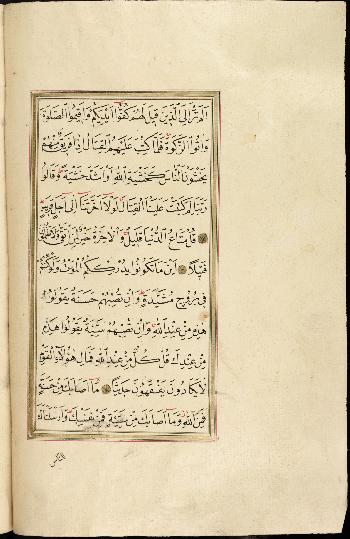 الم تر الى الذين قيل لهم كفوا ايديكم واقيموا الصلوة
واتوا الزكوة فلما كتب عليهم القتال اذا فريق منهم
يخشون الناس كخشية الله او اشد خشية وقالوا
ربنا لم كتبت علينا القتال لولا اخرتنا الى اجل قريب
قل متاع الدنيا قليل والاخرة خير لمن اتقى ولا تظلمون
فتيلا اين ما تكونوا يدرككم الموت ولو كنتم
في بروج مشيدة وان تصبهم حسنة يقولوا
هذه من عند الله وان تصبهم سيئة يقولوا هذه
من عندك قل كل من عند الله فمال هؤلاء القوم
لا يكادون يفقهون حديثا ما اصابك من حسنة
فمن الله وما اصابك من سيئة فمن نفسك وارسلناك
للناس